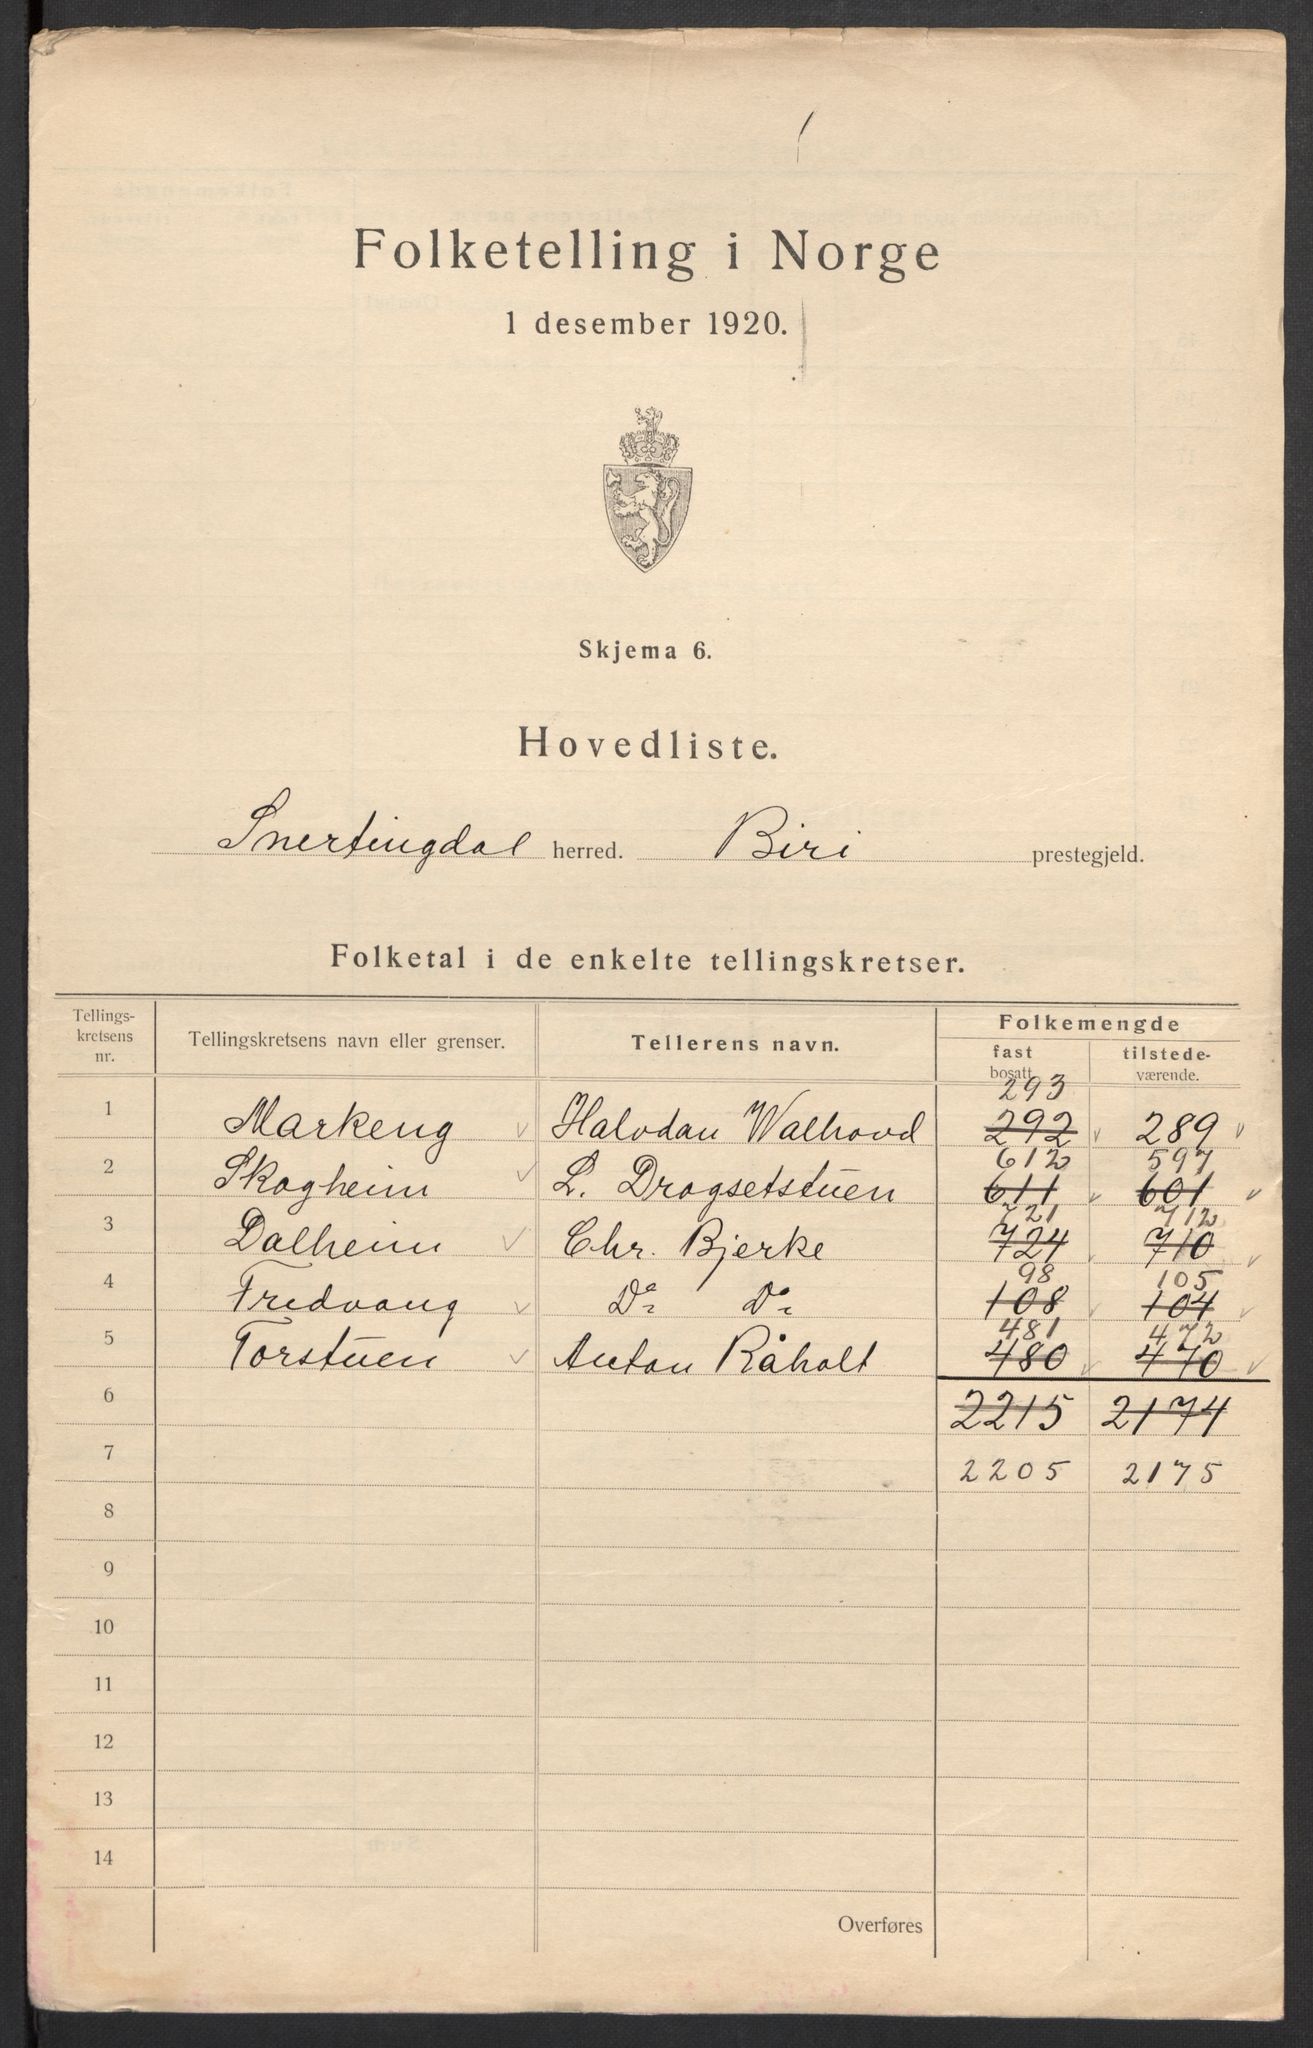 Folketelling i Norge
1 desember 1920.
Skjema 6.
Hovedliste.
Snertingdal herred. Biri prestegjeld.
Folketal i de enkelte tellingskretser.
Tellings-
kretsens
nr.
Tellingskretsens navn eller grenser.
Tellerens navn.
Folkemengde
fast
bosatt.
tilstede-
værende.
293
1 Markeng Halvdan Walhovd 292 289
612 597
2 Skogheim L. Dragsetstuen 611 601
721 712
3 Dalheim Chr. Bjerke 724 710
98 105
4 Fredvang Do Do 108 104
481 472
5 Torstuen Anton Råholt 480 470
6 2215 2174
7 2205 2175
8
9
10
11
12
13
14
Overføres